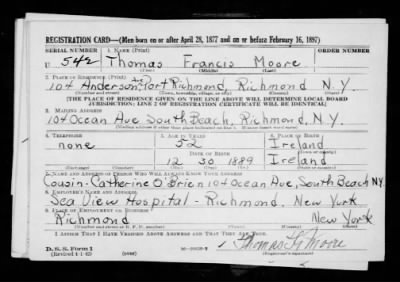 REGISTRATION CARD—(Men born on or after April 28, 1877 and on or before February 16, 1897)
SERIAL NUMBER 1. NAME (Print) ORDER NUMBER
U 542 Thomas Francis Moore
(First) (Middle) (Last)
2. PLACE OF RESIDENCE (Print)
104 Anderson Ave Port Richmond, Richmond N.Y.
(Number and street) (Town, township, village, or city) (County) (State)
[THE PLACE OF RESIDENCE GIVEN ON THE LINE ABOVE WILL DETERMINE LOCAL BOARD
JURISDICTION; LINE 2 OF REGISTRATION CERTIFICATE WILL BE IDENTICAL]
3. MAILING ADDRESS
104 Ocean Ave South Beach, Richmond, N.Y.
[Mailing address if other than place indicated on line 2. If same insert word same]
4. TELEPHONE 5. AGE IN YEARS 6. PLACE OF BIRTH
none 52 Ireland
DATE OF BIRTH
12 30 1889 Ireland
(Exchange) (Number) (Mo.) (Day) (Yr.) (State or country)
7. NAME AND ADDRESS OF PERSON WHO WILL ALWAYS KNOW YOUR ADDRESS
Cousin: Catherine O'Brien 104 Ocean Ave, South Beach N.Y.
8. EMPLOYER'S NAME AND ADDRESS
Sea View Hospital - Richmond, New York
9. PLACE OF EMPLOYMENT OR BUSINESS
Richmond New York
(Number and street or R. F. D. number) (Town) (County) (State)
I AFFIRM THAT I HAVE VERIFIED ABOVE ANSWERS AND THAT THEY ARE TRUE.
D. S. S. Form 1
(Revised 4-1-42) Thomas Moore
(Registrant's signature)